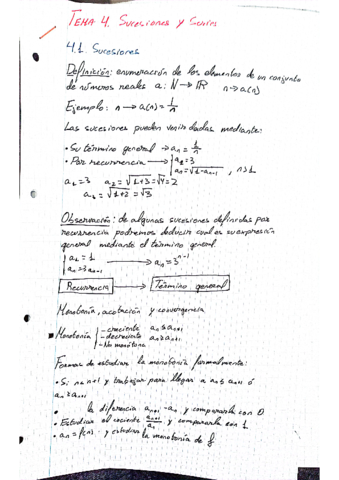 TEMA 4. Sucesiones y Series
4.1. Sucesiones
Definición: enumeración de los elementos de un conjunto
de números reales a: N → IR n → a(n)
Ejemplo: n → a(n) = 1/n
Las sucesiones pueden venir dadas mediante:
• Su término general → an = 1/n
• Por recurrencia → { a1 = 3
an = √1+an-1 , n>1
a1 = 3 a2 = √1+3 = √4 = 2
a3 = √1+2 = √3
Observación: de algunas sucesiones definidas por
recurrencia podremos deducir cual es su expresión
general mediante el término general.
{ a1 = 1
an = 3an-1 → an = 3^n-1
Recurrencia → Término general
Monotonía, acotación y convergencia
Monotonía { - creciente an ≤ an+1
- decreciente an ≥ an+1
- No monótona
Formas de estudiar la monotonía formalmente:
• Si n<n+1 y trabajar para llegar a an ≤ an+1 ó
an ≥ an+1
• la diferencia an+1 - an y compararla con 0
• Estudiar el cociente an+1/an y compararla con 1
• an = f(n) y estudiar la monotonía de f